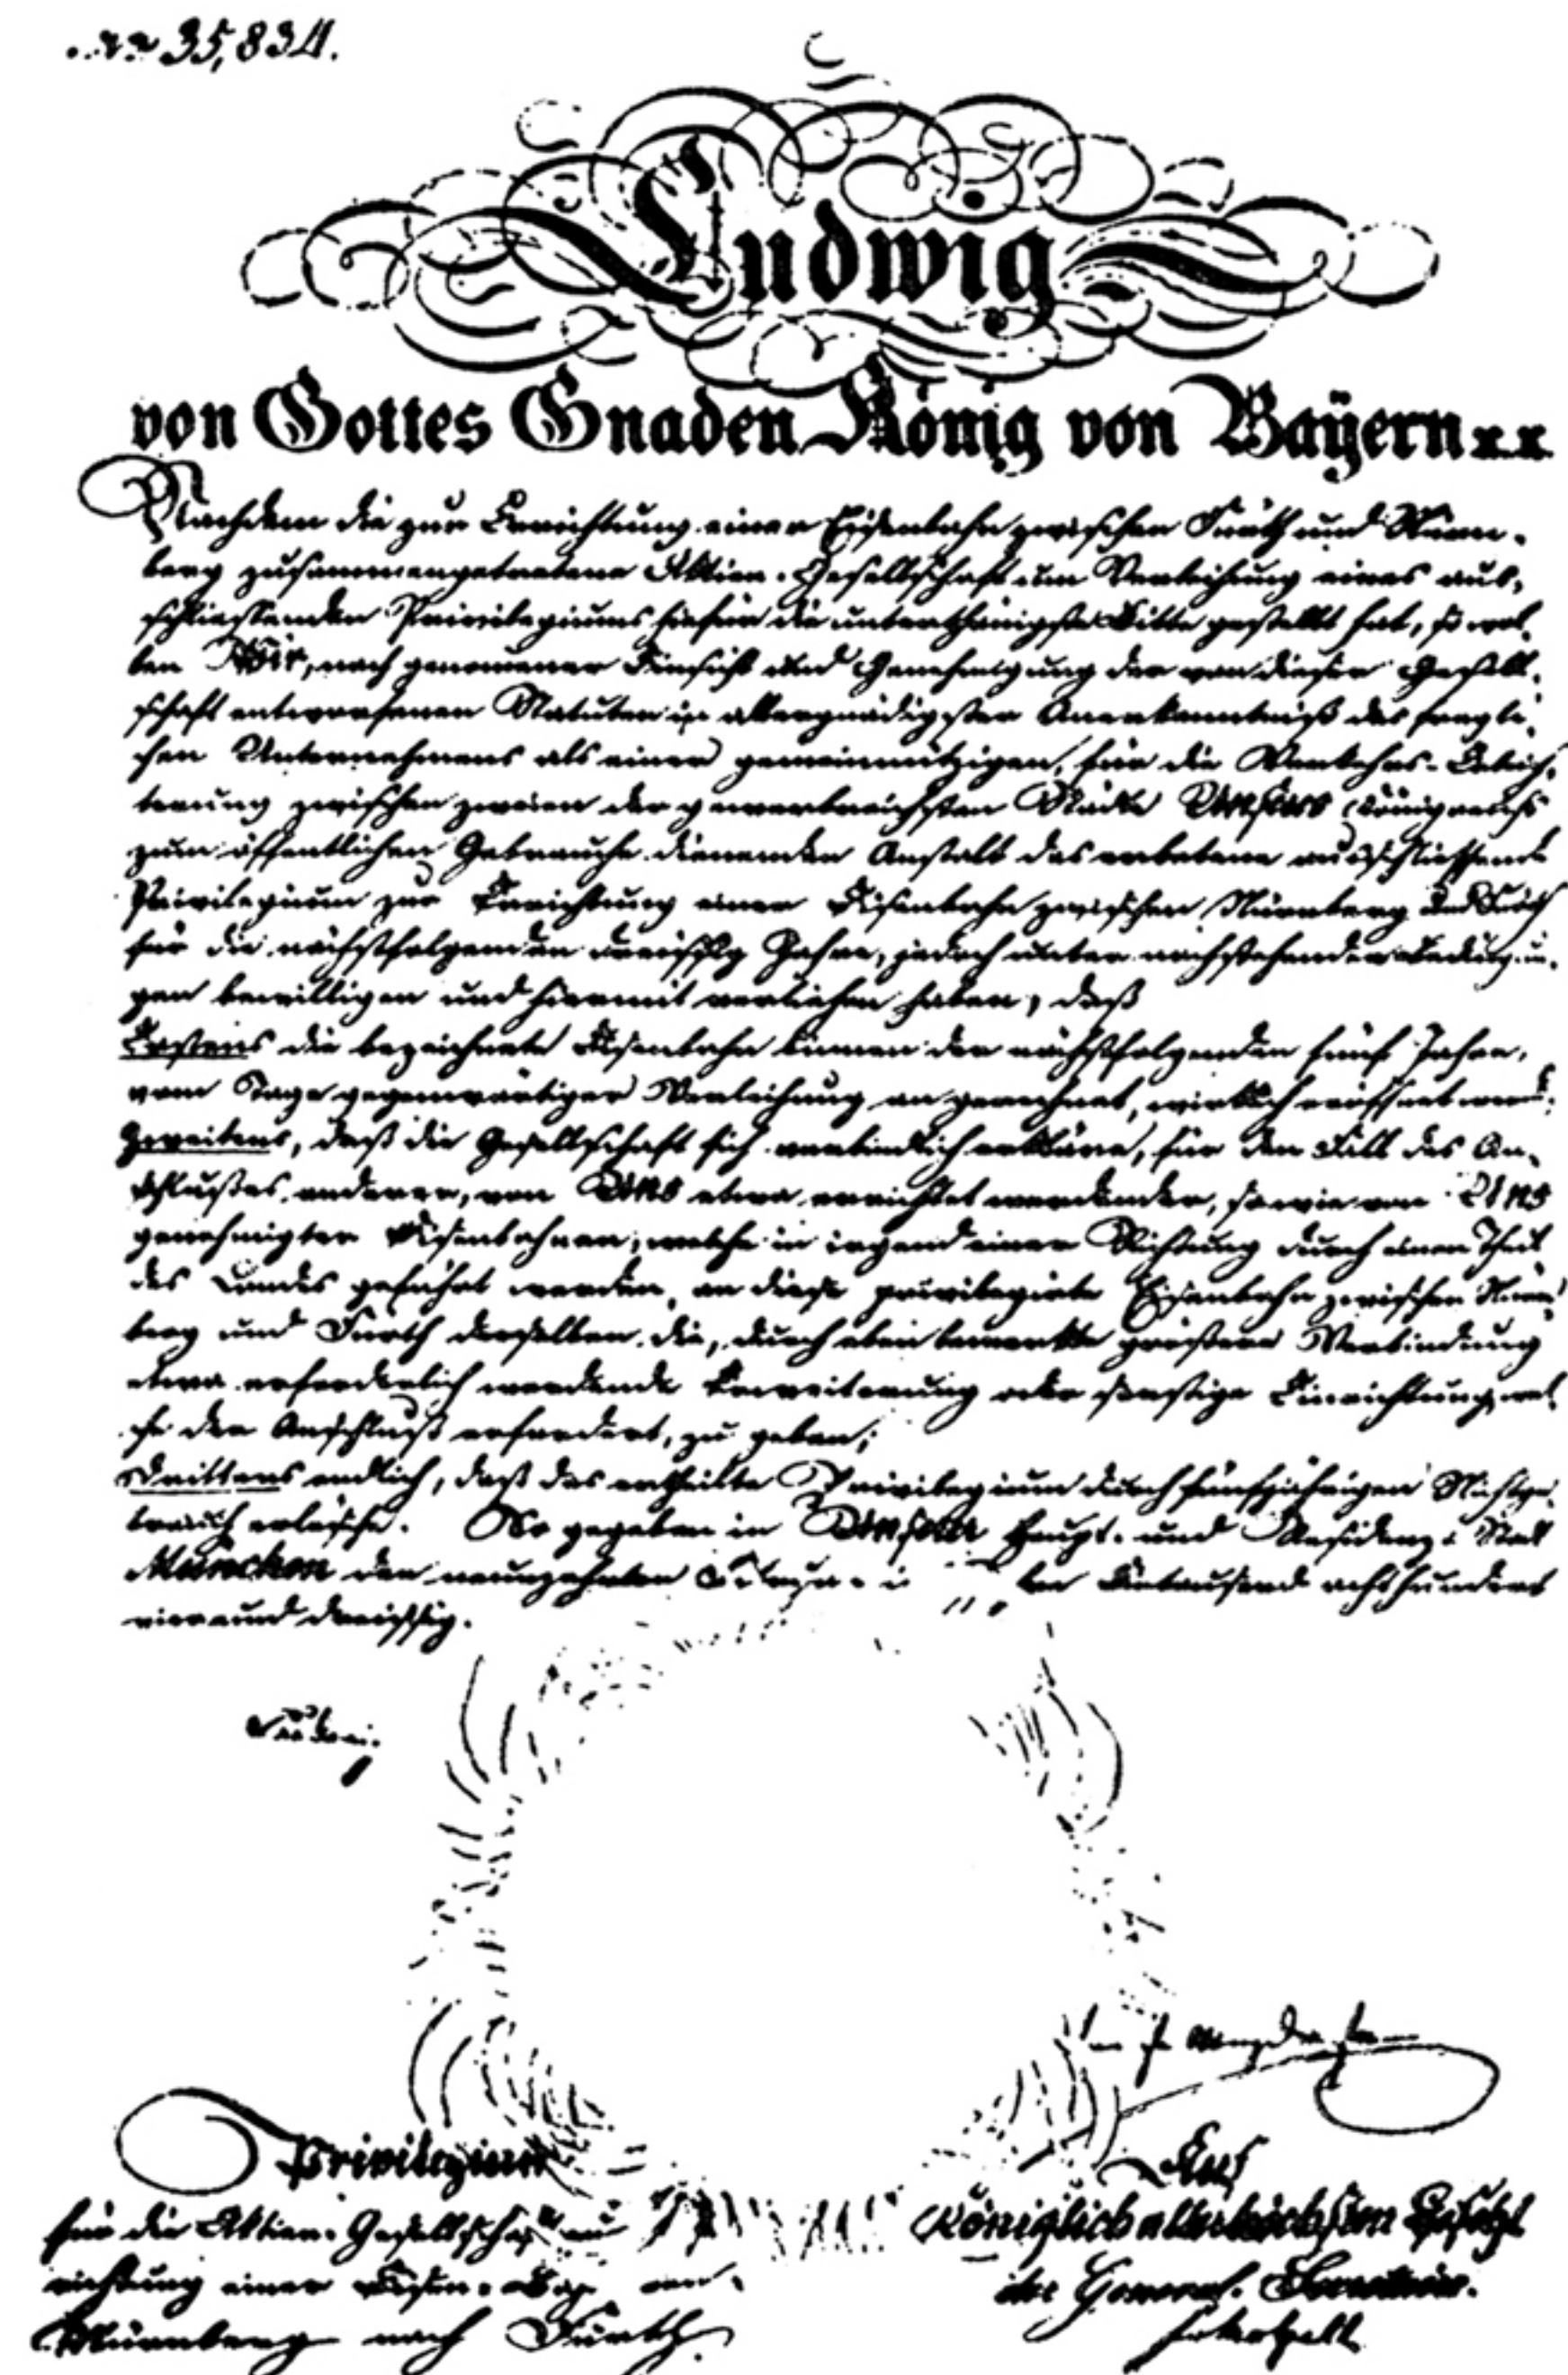 35,834.
Ludwig
von Gottes Gnaden König von Bayern
Nachdem die zur Errichtung einer Eisenbahn zwischen Fürth und Nürn-
berg zusammengetretene Aktien-Gesellschaft um Verleihung eines aus-
schliessenden Privilegiums hiefür die unterthänigste Bitte gestellt hat, so wol-
len Wir, nach genommener Einsicht und Genehmigung der von dieser Gesell-
schaft entworfenen Statuten in allergnädigster Anerkenntniß des fragli-
chen Unternehmens als einer gemeinnützigen, für die Verkehrs-Erleich-
terung zwischen zweien der gewerbreichsten Städte Unseres Königreichs
zum öffentlichen Gebrauche dienenden Anstalt das erbetene ausschliessende
Privilegium zur Errichtung einer Eisenbahn zwischen Nürnberg und Fürth
für die nächstfolgenden dreissig Jahre, jedoch unter nachstehenden Bedingun-
gen bewilligen und hiermit verliehen haben, daß
Erstens die bezeichnete Eisenbahn binnen der nächstfolgenden fünf Jahre,
vom Tage gegenwärtiger Verleihung an gerechnet, wirklich eröffnet werde;
Zweitens, daß die Gesellschaft sich verbindlich erkläre, für den Fall des An-
schlußes anderer, von Uns etwa errichtet werdender, sowie von Uns
genehmigter Eisenbahnen, welche in irgend einer Richtung durch einen Theil
des Landes geführt werden, an diese privilegirte Eisenbahn zwischen Nürn-
berg und Fürth derselben die, durch eben bemerkte größere Verbindung
etwa erforderlich werdende Erweiterung oder sonstige Einrichtung, wel-
che der Anschluß erfordert, zu geben;
Drittens endlich, daß das ertheilte Privilegium durch fünfjährigen Nichtge-
brauch erlösche. So gegeben in Unserer Haupt- und Residenz-Stadt
München den neunzehnten Eintausend achthundert
vierund dreissig.
Ludwig
Privilegium
für die Aktien-Gesellschaft zur
richtung einer Eisen-Bahn von
Nürnberg nach Fürth.
Auf
Königlich allerhöchsten Befehl
der General-Secretär.